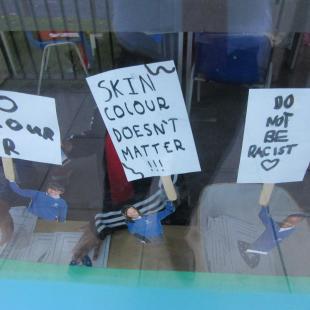 O
COLOUR
R
SKIN
COLOUR
DOESN'T
MATTER
!!!
DO
NOT
BE
RACIST